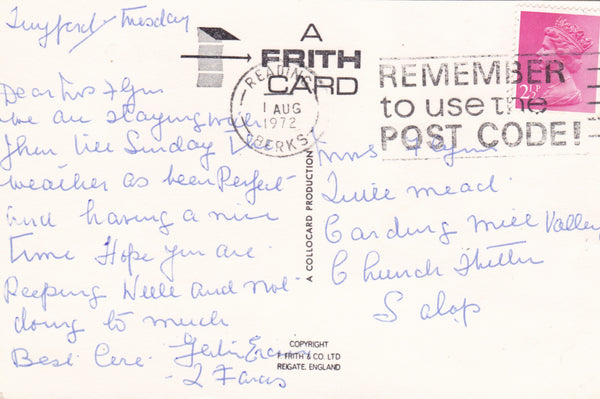 Twyford Tuesday
Dear Mrs Flynn
we are staying with
John till Sunday
weather as been Perfect
and having a nice
time Hope you are
Keeping Well and not
doing to much
Best Love
A
FRITH
CARD
READING
1 AUG
1972
BERKS
REMEMBER
to use the
POST CODE!
2½P
A COLLOCARD PRODUCTION
Mrs Flynn
mead
Carding Mill Valley
Church Stretton
Salop
COPYRIGHT
F. FRITH & CO. LTD
REIGATE, ENGLAND